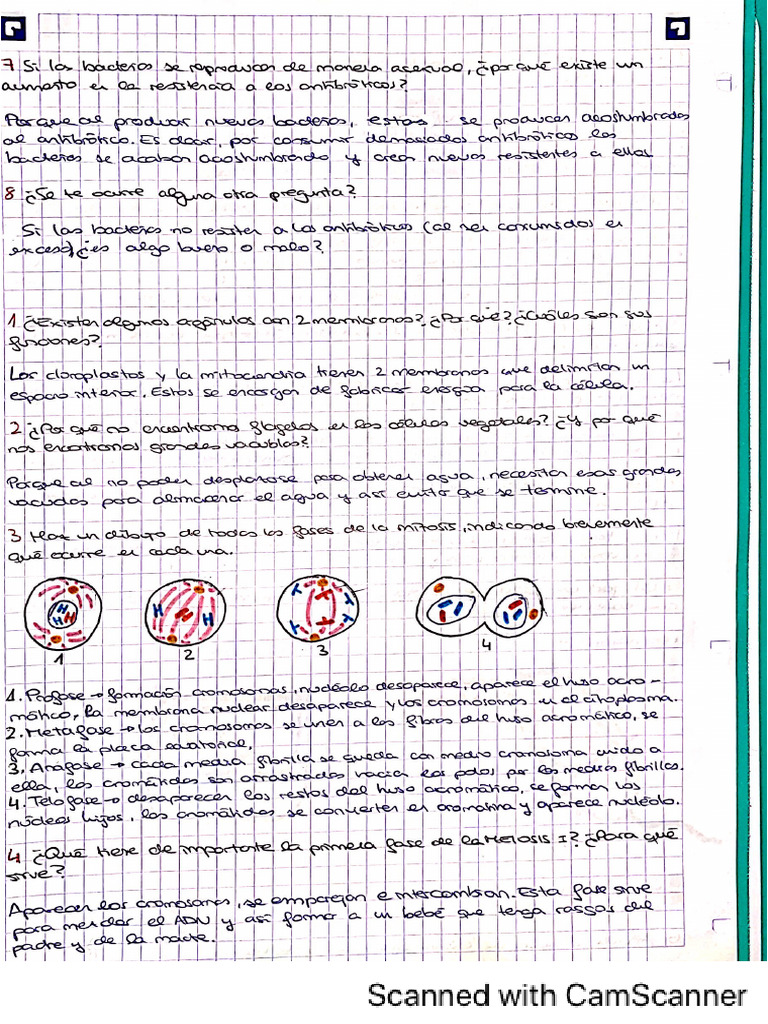 7 Si las bacterias se reproducen de manera asexual, ¿por qué existe un
aumento en la resistencia a los antibióticos?
Porque al producir nuevas bacterias, estas se producen acostumbradas
al antibiótico. Es decir, por consumir demasiados antibióticos las
bacterias se acaban acostumbrando y crean nuevas resistentes a ellos.
8 ¿Se te ocurre alguna otra pregunta?
Si las bacterias no resisten a los antibióticos (al ser consumidos en
exceso), ¿es algo bueno o malo?
1 ¿Existen algunos orgánulos con 2 membranas? ¿Por qué? ¿Cuáles son sus
funciones?
Los cloroplastos y la mitocondria tienen 2 membranas que delimitan un
espacio interior. Estos se encargan de fabricar energía para la célula.
2 ¿Por qué no encontramos flagelos en las células vegetales? ¿Y por qué
nos encontramos grandes vacuolas?
Porque al no poder desplazarse para obtener agua, necesitan esas grandes
vacuolas para almacenar el agua y así evitar que se termine.
3 Haz un dibujo de todas las fases de la mitosis, indicando brevemente
qué ocurre en cada una.
1 2 3 4
1. Profase → formación cromosomas, nucléolo desaparece, aparece el huso acro-
mático, la membrana nuclear desaparece y los cromosomas en el citoplasma.
2. Metafase → los cromosomas se unen a las fibras del huso acromático, se
forma la placa ecuatorial.
3. Anafase → cada media fibrilla se queda con medio cromosoma unido a
ella, las cromátidas son arrastradas hacia los polos por las medias fibrillas.
4. Telofase → desaparecen los restos del huso acromático, se forman los
núcleos hijos, las cromátidas se convierten en cromatina y aparece nucléolo.
4 ¿Qué tiene de importante la primera fase de la MEIOSIS I? ¿Para qué
sirve?
Aparecen los cromosomas, se emparejan e intercambian. Esta fase sirve
para mezclar el ADN y así formar a un bebé que tenga rasgos del
padre y de la madre.
Scanned with CamScanner